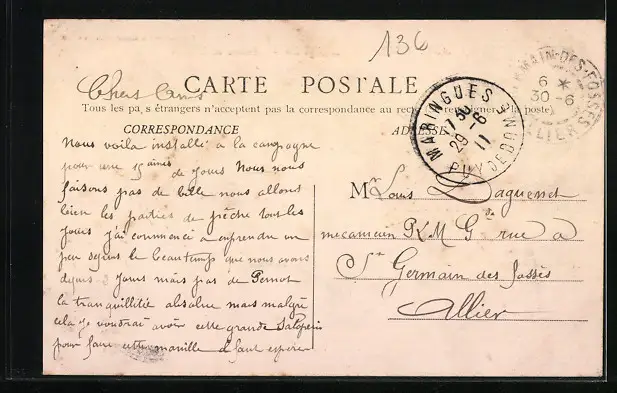 136
Chers Amis
CARTE POSTALE
Tous les pays étrangers n'acceptent pas la correspondance au recto (se renseigner à la poste)
CORRESPONDANCE
ADRESSE
MARINGUES PUY-DE-DOME
7 30
29-6
11
GERMAIN-DES-FOSSÉS ALLIER
6 *
30-6
Nous voila installé a la campagne
pour une 15aines de jours Nous nous
faisons pas de bille nous allons
bien les parties de pêche tous les
jours j'ai commencé a
peu depuis le beautemps que nous avons
depuis 2 jours mais pas de Pernot
la tranquillitée absolue mais malgré
cela je voudrai avoir cette grande
pour faire cette manille il faut espérer
Mr Louis Daguenet
mecanicien P.L.M Gde rue a
St Germain des fossés
Allier